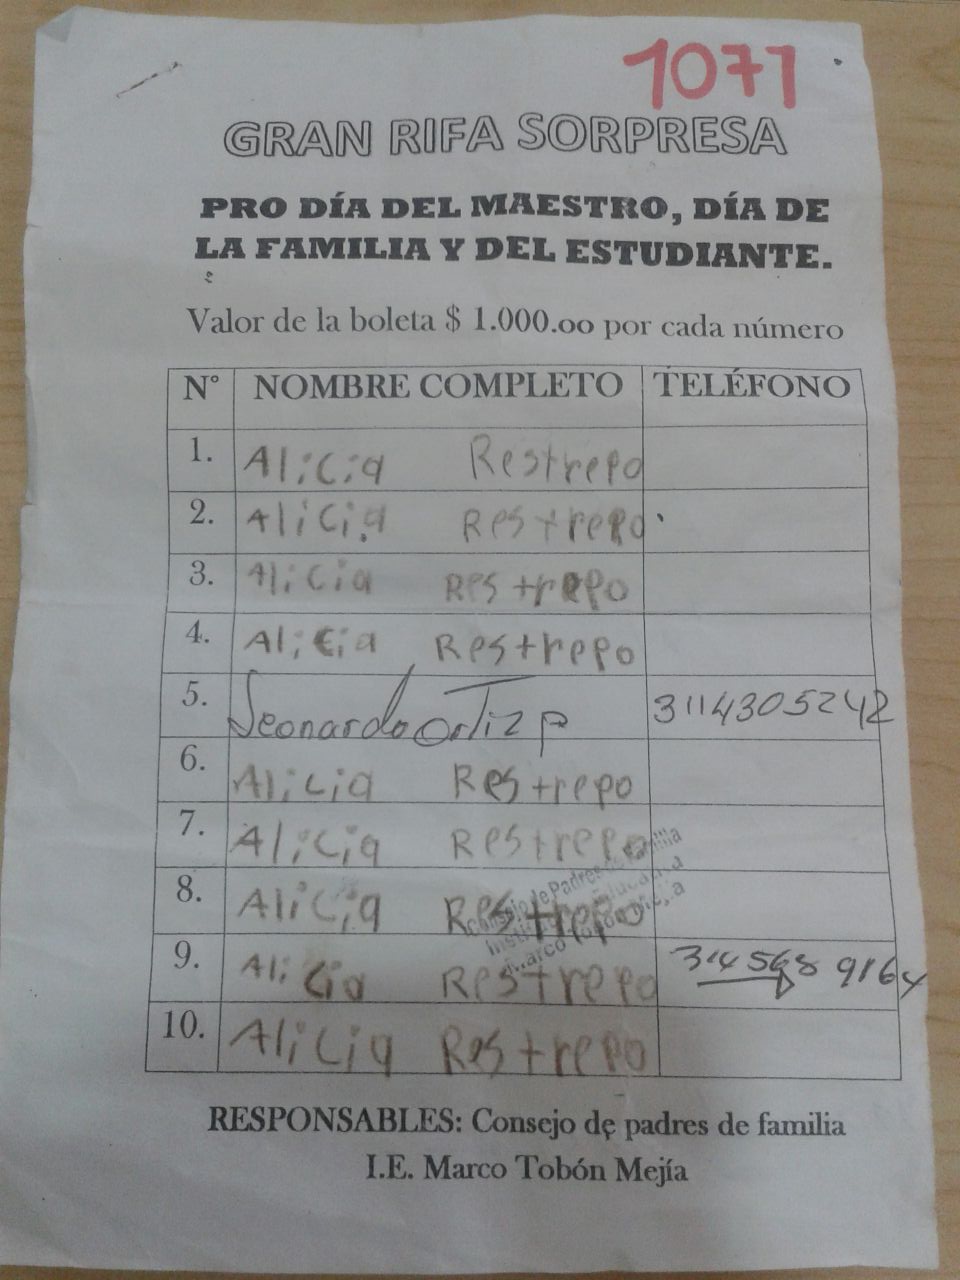 1071
GRAN RIFA SORPRESA
PRO DÍA DEL MAESTRO, DÍA DE
LA FAMILIA Y DEL ESTUDIANTE.
Valor de la boleta $ 1.000.oo por cada número
N° NOMBRE COMPLETO TELÉFONO
1. Alicia Restrepo
2. Alicia Restrepo
3. Alicia Restrepo
4. Alicia Restrepo
5. Leonardo Ortiz P 3114305242
6. Alicia Restrepo
7. Alicia Restrepo
8. Alicia Restrepo
Consejo de Padres de Familia
Institución Educativa
Marco Tobón Mejía
9. Alicia Restrepo 314568 9164
10. Alicia Restrepo
RESPONSABLES: Consejo de padres de familia
I.E. Marco Tobón Mejía